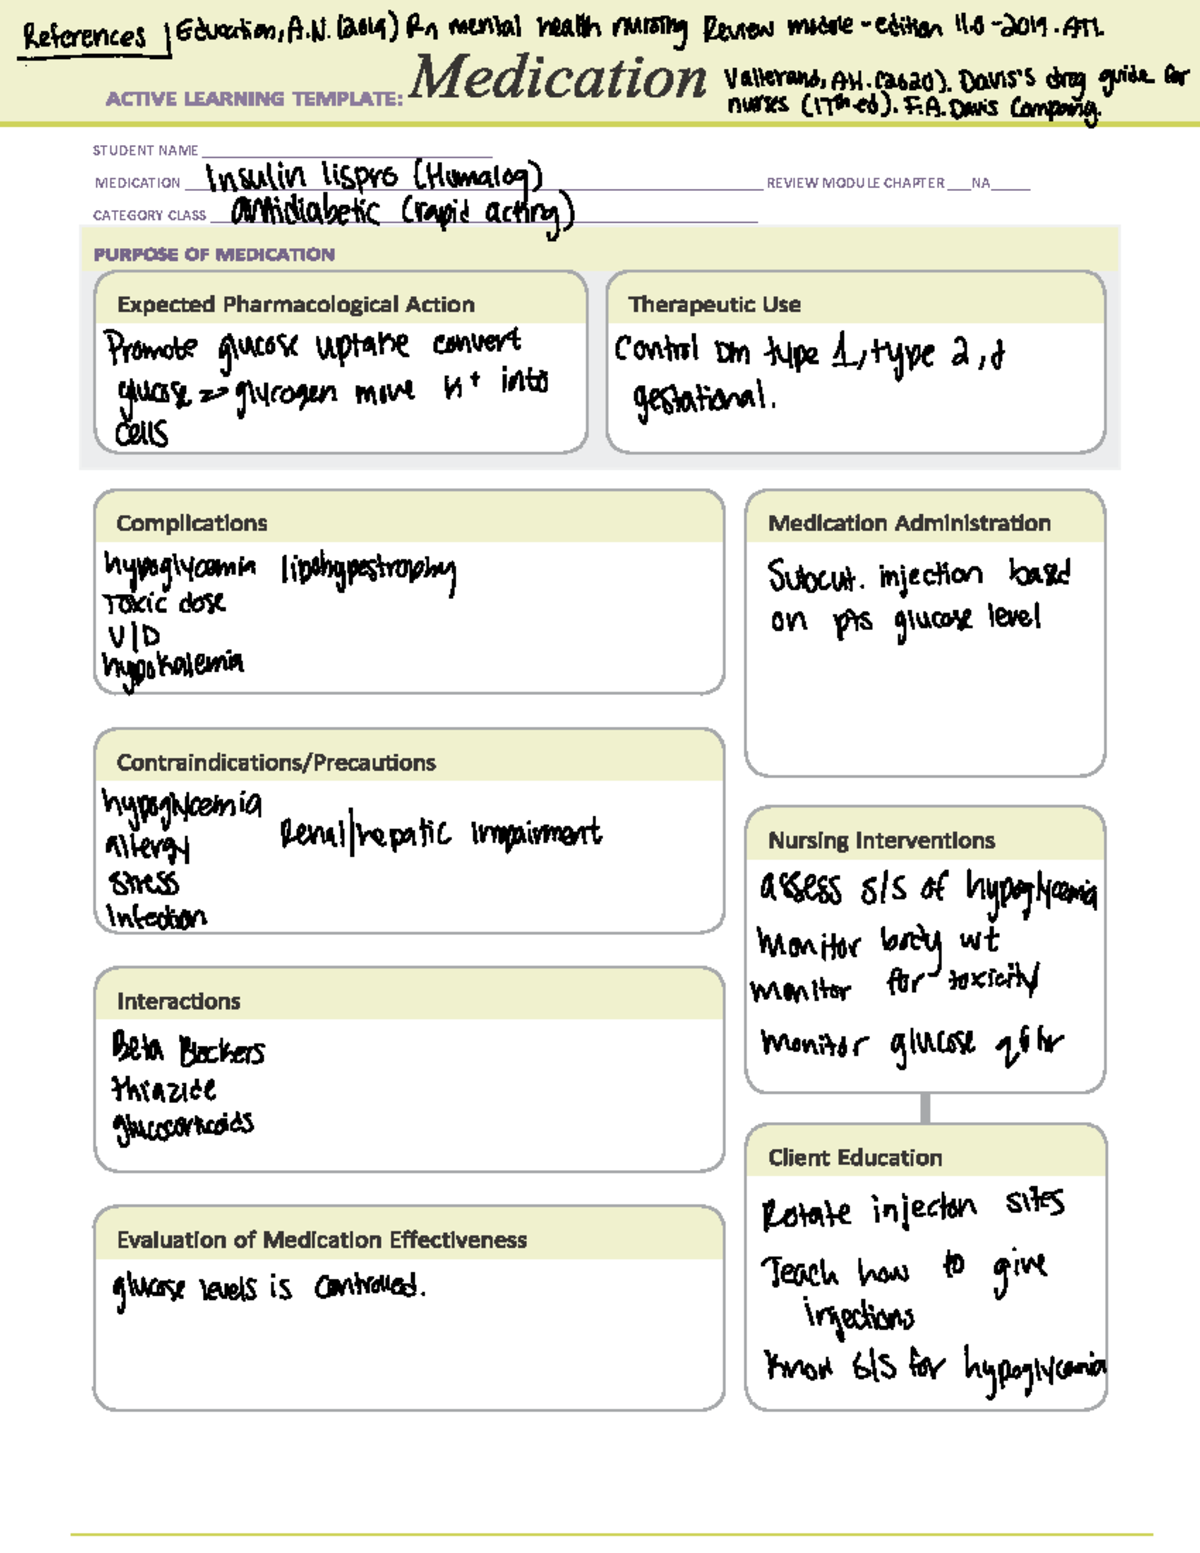 References Education, A.N. (2019) Rn mental health nursing Review module - edition 11.0 - 2019. ATI.
ACTIVE LEARNING TEMPLATE: Medication
Vallerand, A.H. (2020). Davis's drug guide for
nurses (17th ed). F.A. Davis Company.
STUDENT NAME
MEDICATION Insulin lispro (Humalog) REVIEW MODULE CHAPTER NA
CATEGORY CLASS antidiabetic (rapid acting)
PURPOSE OF MEDICATION
Expected Pharmacological Action
Promote glucose uptake convert
glucose => glycogen move K+ into
cells
Therapeutic Use
Control Dm type 1, type 2, &
gestational.
Complications
hypoglycemia lipohypestrophy
Toxic dose
V/D
hypokalemia
Medication Administration
Subcut. injection based
on pts glucose level
Contraindications/Precautions
hypoglycemia
allergy Renal/hepatic impairment
stress
Infection
Nursing Interventions
assess s/s of hypoglycemia
monitor body wt
monitor for toxicity
monitor glucose q6hr
Interactions
Beta Blockers
thiazide
glucocorticoids
Client Education
Rotate injecton sites
Teach how to give
injections
Know s/s for hypoglycemia
Evaluation of Medication Effectiveness
glucose levels is controlled.